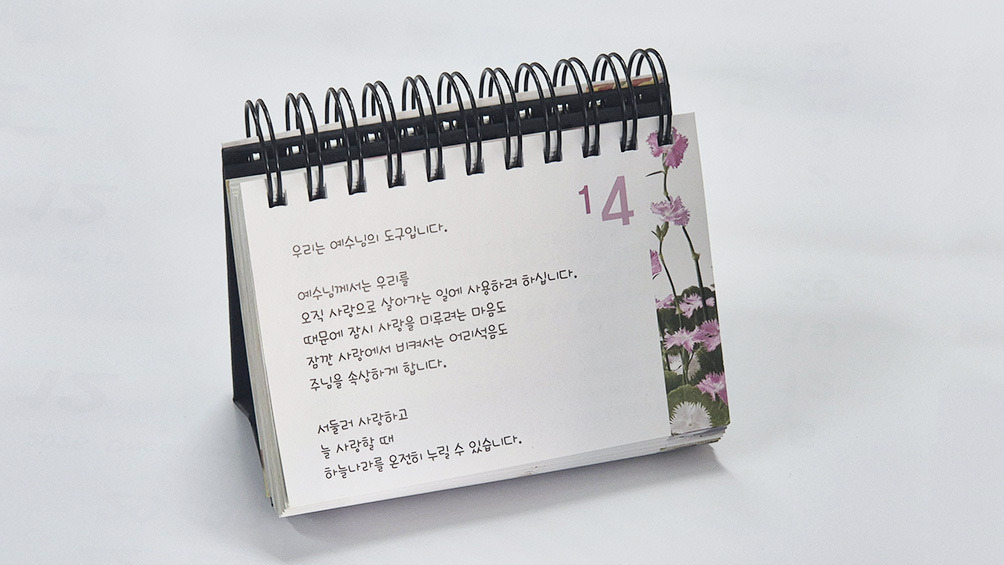 14
우리는 예수님의 도구입니다.
예수님께서는 우리를
오직 사랑으로 살아가는 일에 사용하려 하십니다.
때문에 잠시 사랑을 미루려는 마음도
잠깐 사랑에서 비켜서는 어리석음도
주님을 속상하게 합니다.
서둘러 사랑하고
늘 사랑할 때
하늘나라를 온전히 누릴 수 있습니다.